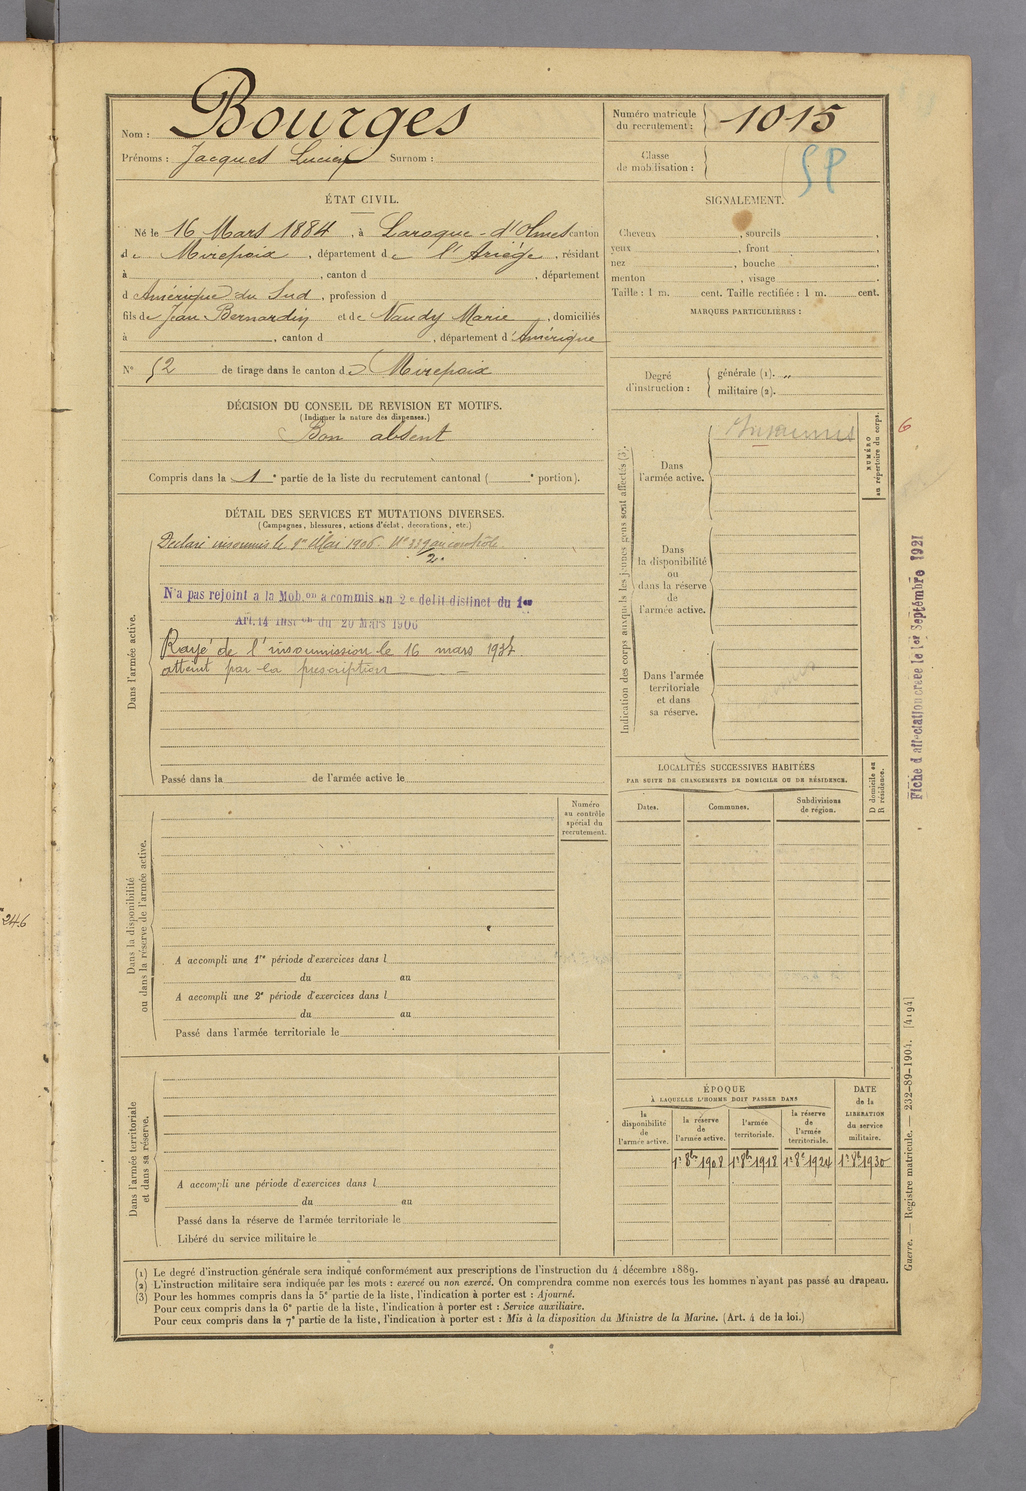 Nom : Bourges
Prénoms : Jacques Lucien Surnom :
Numéro matricule
du recrutement : 1015
Classe
de mobilisation :
SP
ÉTAT CIVIL.
Né le 16 Mars 1884, à Laroque-d'Olmes canton
de Mirepoix, département de l'Ariège, résidant
à , canton d , département
d Amérique du Sud, profession d
fils de Jean Bernardin et de Naudy Marie, domiciliés
à , canton d , département d'Amérique
N° 52 de tirage dans le canton de Mirepoix
SIGNALEMENT.
Cheveux , sourcils ,
yeux , front ,
nez , bouche ,
menton , visage .
Taille : 1 m. cent. Taille rectifiée : 1 m. cent.
MARQUES PARTICULIÈRES :
Degré
d'instruction :
générale (1). „
militaire (2).
DÉCISION DU CONSEIL DE REVISION ET MOTIFS.
(Indiquer la nature des dispenses.)
Bon absent
Compris dans la 1e partie de la liste du recrutement cantonal ( e portion).
DÉTAIL DES SERVICES ET MUTATIONS DIVERSES.
(Campagnes, blessures, actions d'éclat, décorations, etc.)
Dans l'armée active.
Déclaré insoumis le 1er Mai 1906. N° 339 au contrôle
2.
N'a pas rejoint a la Mob.on a commis un 2e delit distinct du 1er
Art.14 Instr.on du 20 Mars 1906
Rayé de l'insoumission le 16 mars 1937
atteint par la prescription
Passé dans la de l'armée active le
Indication des corps auxquels les jeunes gens sont affectés (3).
Dans
l'armée active.
Insoumis
Dans
la disponibilité
ou
dans la réserve
de
l'armée active.
Dans l'armée
territoriale
et dans
sa réserve.
NUMÉRO
au répertoire du corps.
6
Fiche d'affectation créée le 1er Septembre 1921
Dans la disponibilité
ou dans la réserve de l'armée active.
Numéro
au contrôle
spécial du
recrutement.
A accompli une 1re période d'exercices dans l
du au
A accompli une 2e période d'exercices dans l
du au
Passé dans l'armée territoriale le
LOCALITÉS SUCCESSIVES HABITÉES
PAR SUITE DE CHANGEMENTS DE DOMICILE OU DE RÉSIDENCE.
Dates.
Communes.
Subdivisions
de région.
D domicile ou
R résidence.
Dans l'armée territoriale
et dans sa réserve.
A accompli une période d'exercices dans l
du au
Passé dans la réserve de l'armée territoriale le
Libéré du service militaire le
ÉPOQUE
À LAQUELLE L'HOMME DOIT PASSER DANS
la
disponibilité
de
l'armée active.
la réserve
de
l'armée active.
l'armée
territoriale.
la réserve
de
l'armée
territoriale.
DATE
de la
LIBÉRATION
du service
militaire.
1r 8bre 1908 1r 8b 1918 1r 8e 1924 1r 8b 1930
246
(1) Le degré d'instruction générale sera indiqué conformément aux prescriptions de l'instruction du 4 décembre 1889.
(2) L'instruction militaire sera indiquée par les mots : exercé ou non exercé. On comprendra comme non exercés tous les hommes n'ayant pas passé au drapeau.
(3) Pour les hommes compris dans la 5e partie de la liste, l'indication à porter est : Ajourné.
Pour ceux compris dans la 6e partie de la liste, l'indication à porter est : Service auxiliaire.
Pour ceux compris dans la 7e partie de la liste, l'indication à porter est : Mis à la disposition du Ministre de la Marine. (Art. 4 de la loi.)
Guerre. — Registre matricule. — 232-89-1904. [4194]